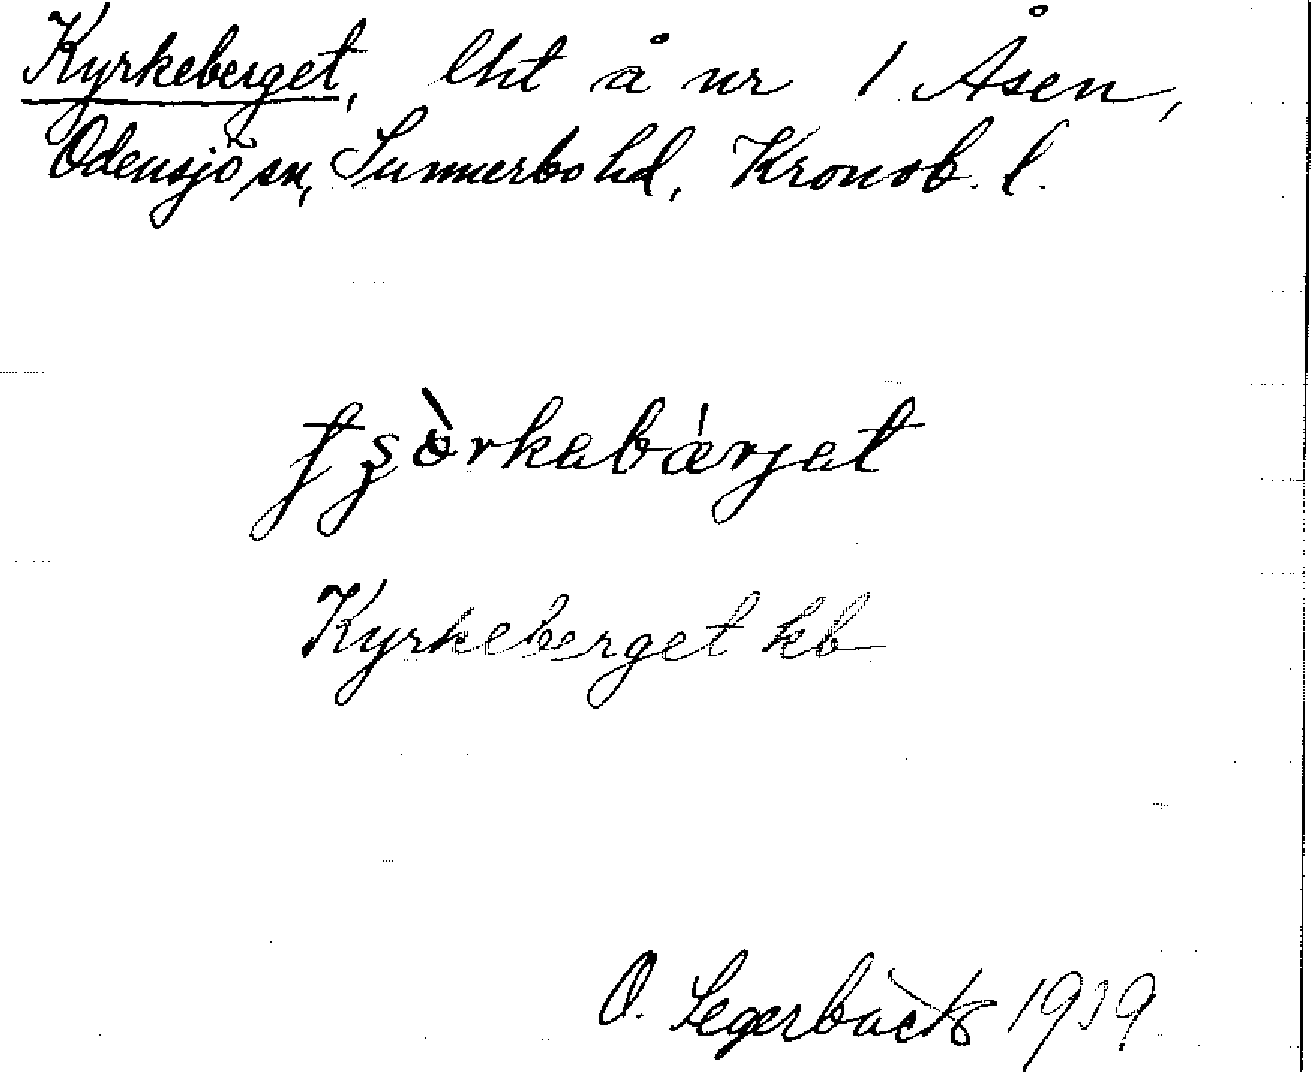 Kyrkeberget, lht å nr 1 Åsen,
Odensjö sn, Sunnerbo hd, Kronob. l.
Kyrkeberget kb
O. Segerbäck 1939